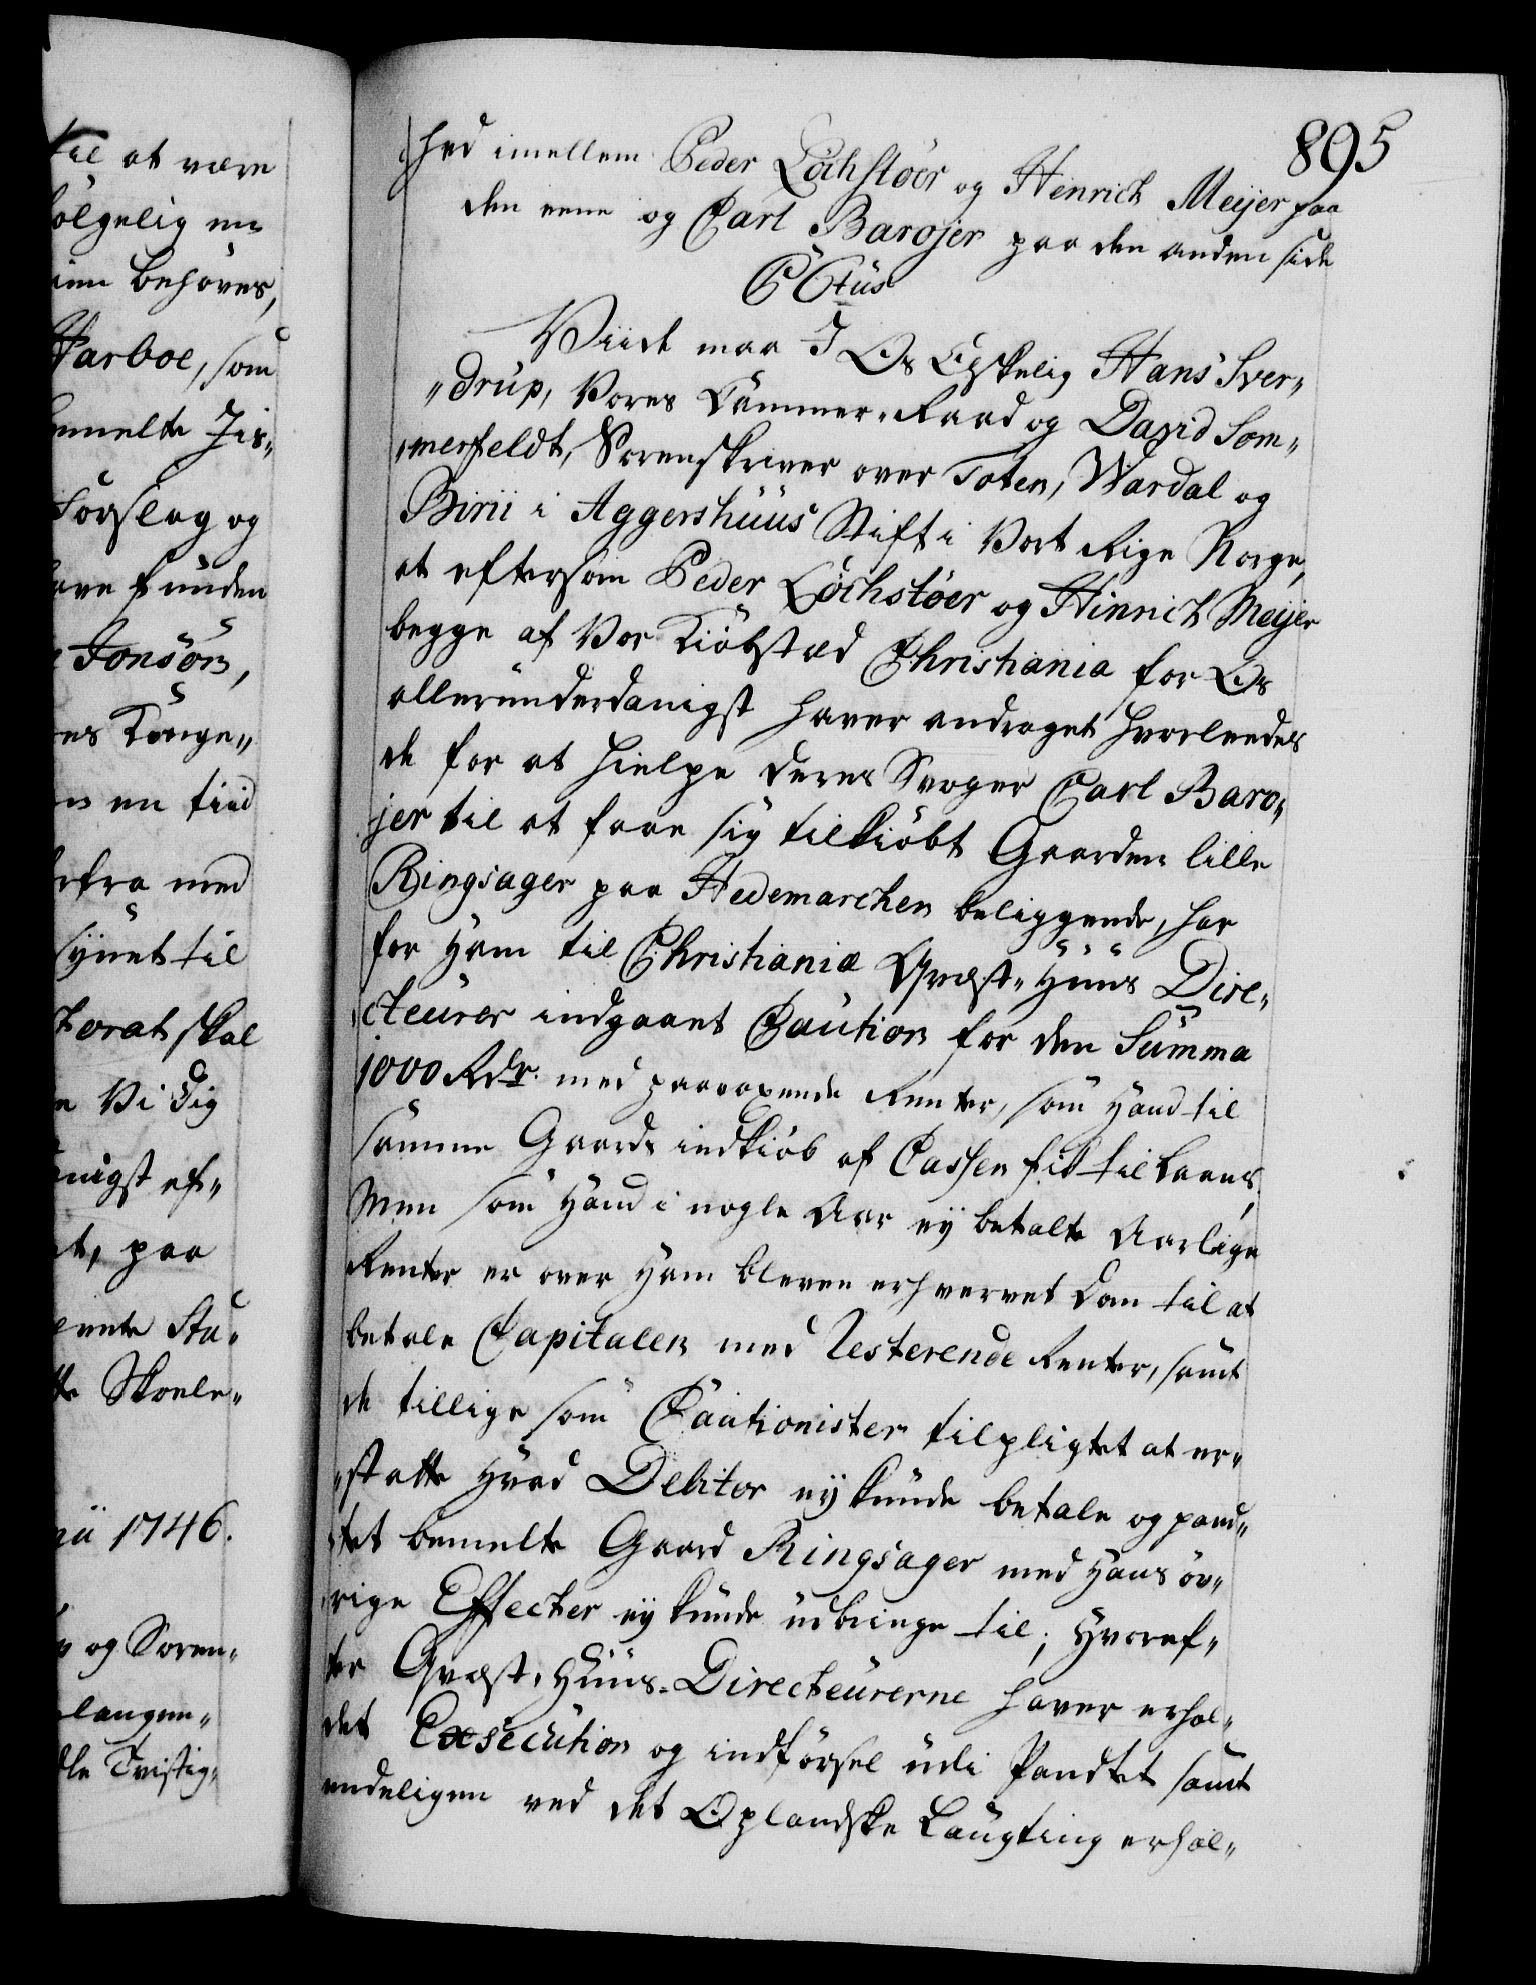 til at være
følgelig en
Harboe, som
bemelte Jis„
Forslag og
funden
Jonsön,
Konge„
en tiid
herfra med
synet til
torat skal
Vi dig
digst ef„
paa
Stu„
Skoele„
1746.
og Soren„
langen„
Tvistig„
895
hed imellem Peder Löchstöer og Henrich Meijer paa
den eene og Carl Barojer paa den anden side
C Ctüs
Viide maa I Os Elskelig Hans Sver„
„drup, Vores Cammer-Raad og David Som„
„merfeldt, Sorenskriver over Toten, Wardal og
Birii i Aggershuus Stift i Vort Rige Norge,
at eftersom Peder Löchstöer og Hinrich Meijer
begge af Vor Kiöbstæd Christiania for Os
allerunderdanigst haver andraget hvorleedes
de for at hielpe deres Svoger Carl Baro„
jer til at faae sig tilkiöbt Gaarden lille
Ringsager paa Hedemarchen beliggende, har
for Ham til Christianiæ Qvæst-Huus Dire„
„cteurer indgaaet Caution for den Summa
1000 Rdr. med paavoxende Renter, som Hand til
samme Gaards indkiöb af Cassen fik til Laans,
Men som Hand i nogle Aar ey betalte Aarlige
Renter er over Ham bleven erhvervet Dom til at
betale Capitalen med Resterende Renter, samt
de tillige som Cautionister tilpligtet at er„
„statte Hvad Debitor ey kunde betale og pand„
„tet bemelte Gaard Ringsager med Hans öv„
„rige Effecter ey kunde udbringe til; Hvoref„
ter Qvæst-Huus-Directeurerne haver erhol„
det Exsecution og indförsel udi Pandtet samt
endeligen ved det Oplandske Laugting erhol„